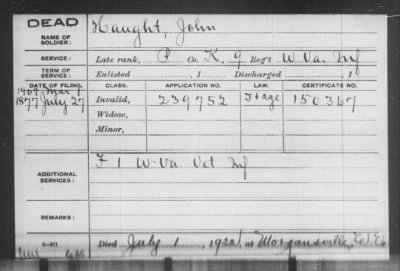 DEAD
NAME OF SOLDIER:
Haught, John
SERVICE:
Late rank, P Co. K, 9 Reg't W Va. Inf
TERM OF SERVICE:
Enlisted , 1 Discharged , 1
DATE OF FILING. CLASS. APPLICATION NO. LAW. CERTIFICATE NO.
1907 Mar 1
1877 July 27 Invalid, 239752 150367
Widow,
Minor,
ADDITIONAL SERVICES:
F 1 W. Va. Vet Inf
REMARKS:
Died July 1 at Morgansville,